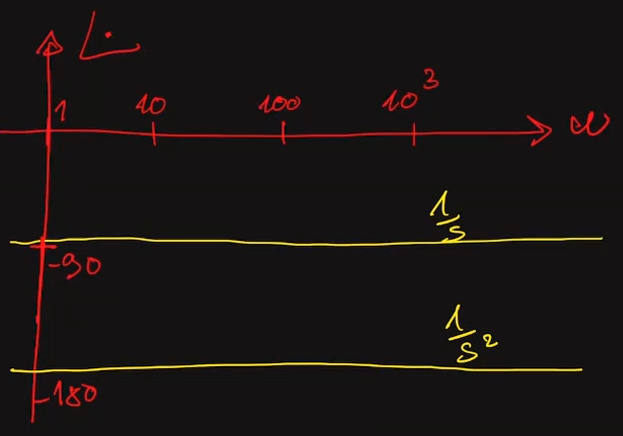 ∠·
1 10 100 10³ ω
1/s
-90
1/s²
-180